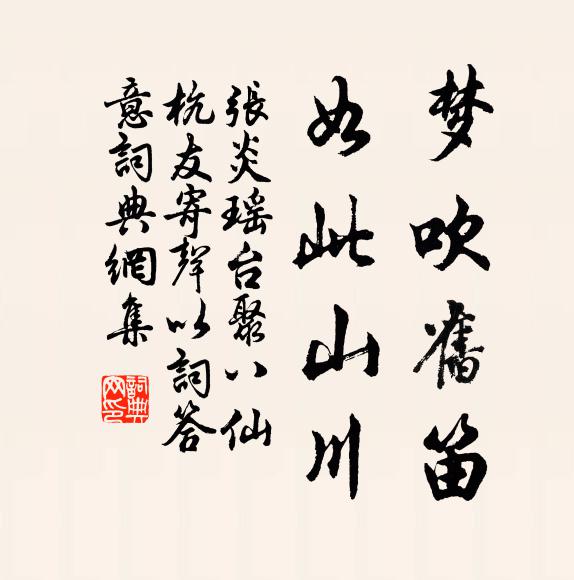 梦吹舊笛
如此山川
張炎瑶台聚八仙
杭友寄聲以詞答
意詞典網集
詞典网印